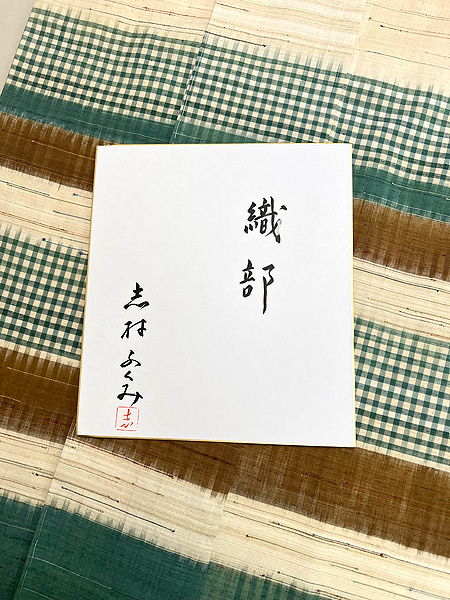 織部
志村ふくみ
志